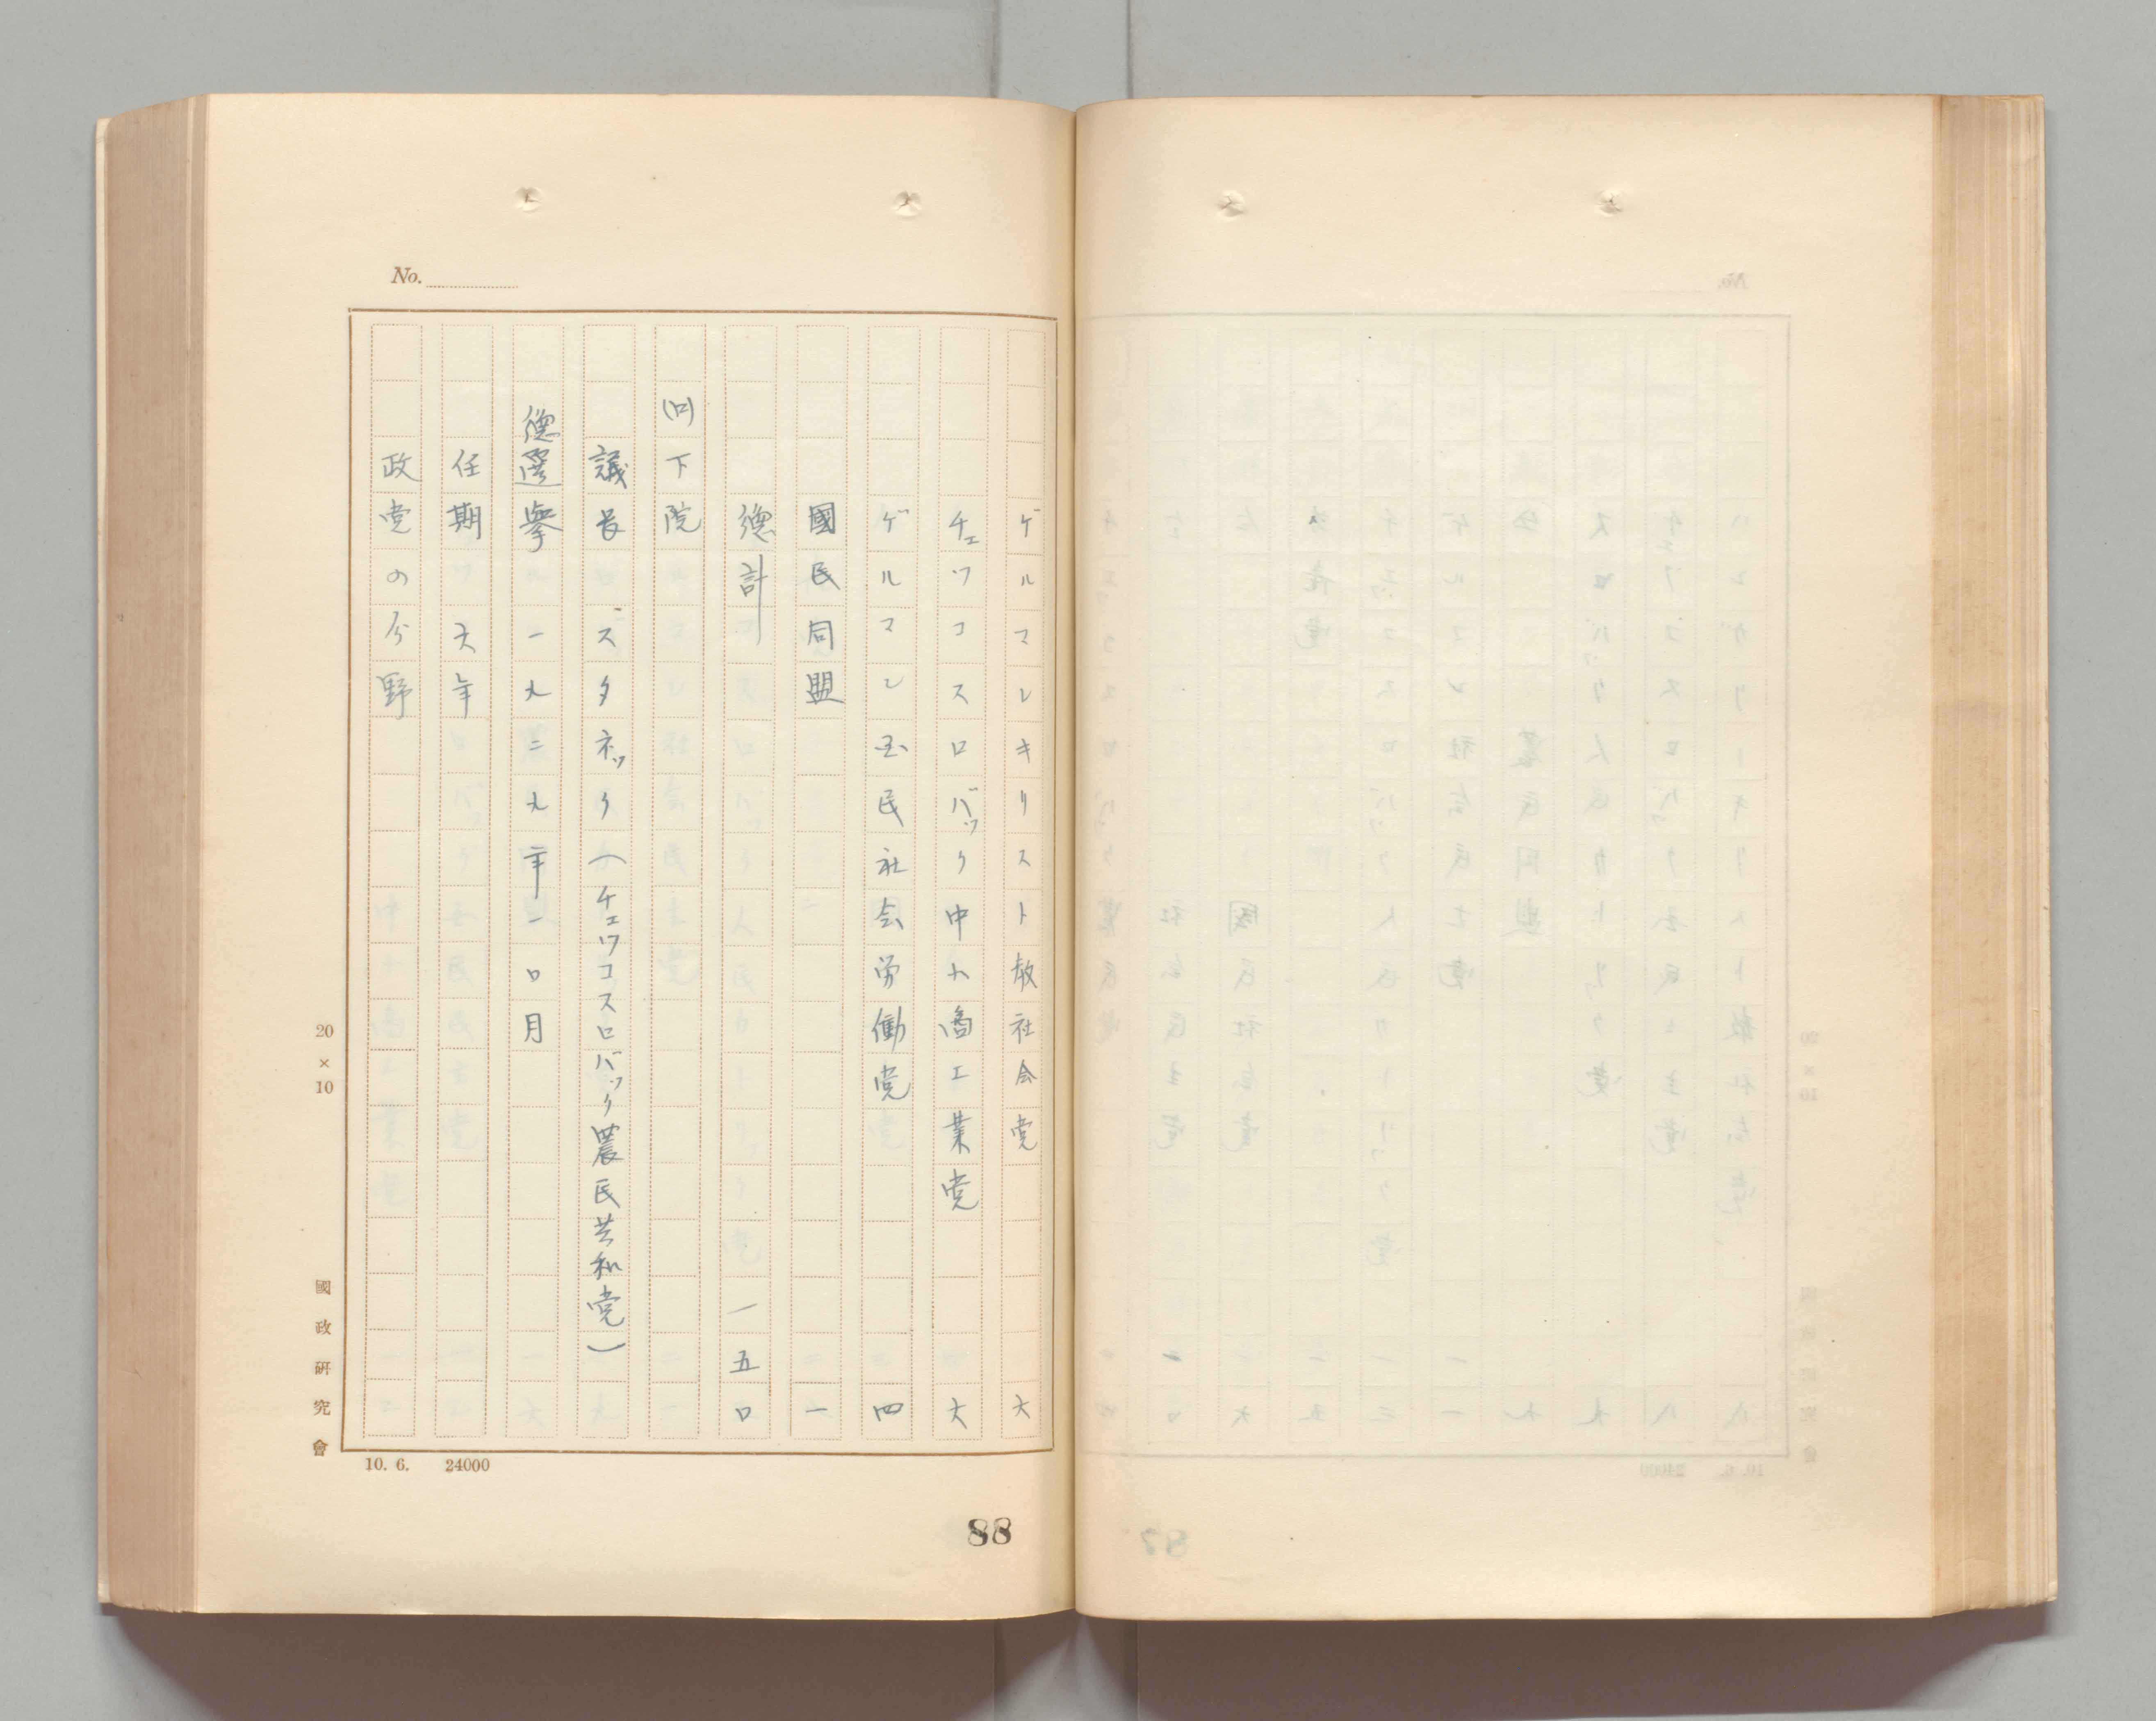 No.
ゲルマンキリスト教社会党 六
チェツコスロバツク中小商工業党 六
ゲルマン国民社会労働党 四
國民同盟 一
總計 一五〇
(ロ)下院
議長 ズタネツク(チェツコスロバツク農民共和党)
總選挙 一九二九年一〇月
任期 六年
政党の分野
20×10
國政研究會
10. 6. 24000
88